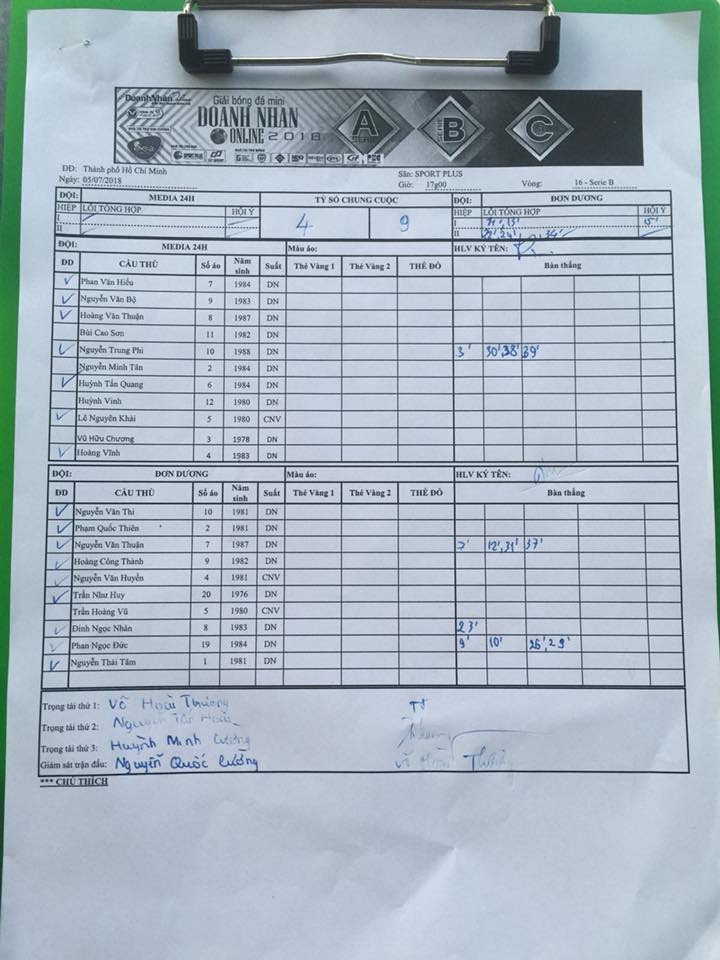 DoanhNhân
Giải bóng đá mini
DOANH NHÂN
ONLINE 2018
A SERIE
SERIE B
C
SPORT PLUS
ĐĐ: Thành phố Hồ Chí Minh Sân: SPORT PLUS
Ngày: 05/07/2018 Giờ: 17g00 Vòng: 16 - Serie B
ĐỘI: MEDIA 24H TỶ SỐ CHUNG CUỘC ĐỘI: ĐƠN DƯƠNG
HIỆP LỖI TỔNG HỢP HỘI Ý 4 9 HIỆP LỖI TỔNG HỢP HỘI Ý
I I 15'
II II 24', 34'
ĐỘI: MEDIA 24H Màu áo: HLV KÝ TÊN:
ĐD CẦU THỦ Số áo Năm sinh Suất Thẻ Vàng 1 Thẻ Vàng 2 THẺ ĐỎ Bàn thắng
Phan Văn Hiếu 7 1984 DN
Nguyễn Văn Bộ 9 1983 DN
Hoàng Văn Thuận 8 1987 DN
Bùi Cao Sơn 11 1982 DN
Nguyễn Trung Phi 10 1988 DN 3' 30' 38' 39'
Nguyễn Minh Tân 2 1984 DN
Huỳnh Tấn Quang 6 1984 DN
Huỳnh Vinh 12 1980 DN
Lê Nguyên Khải 5 1980 CNV
Vũ Hữu Chương 3 1978 DN
Hoàng Vĩnh 4 1983 DN
ĐỘI: ĐƠN DƯƠNG Màu áo: HLV KÝ TÊN:
ĐD CẦU THỦ Số áo Năm sinh Suất Thẻ Vàng 1 Thẻ Vàng 2 THẺ ĐỎ Bàn thắng
Nguyễn Văn Thi 10 1981 DN
Phạm Quốc Thiên 2 1981 DN
Nguyễn Văn Thuận 7 1987 DN 7' 12', 31' 37'
Hoàng Công Thành 9 1982 DN
Nguyễn Văn Huyền 4 1981 CNV
Trần Như Huy 20 1976 DN
Trần Hoàng Vũ 5 1980 CNV
Đinh Ngọc Nhân 8 1983 DN 23'
Phan Ngọc Đức 19 1984 DN 9' 10' 26', 29'
Nguyễn Thái Tâm 1 1981 DN
Trọng tài thứ 1: Võ Hoài Thương
Trọng tài thứ 2: Nguyễn
Trọng tài thứ 3: Huỳnh Minh Cường
Giám sát trận đấu: Nguyễn Quốc Cường
*** CHÚ THÍCH